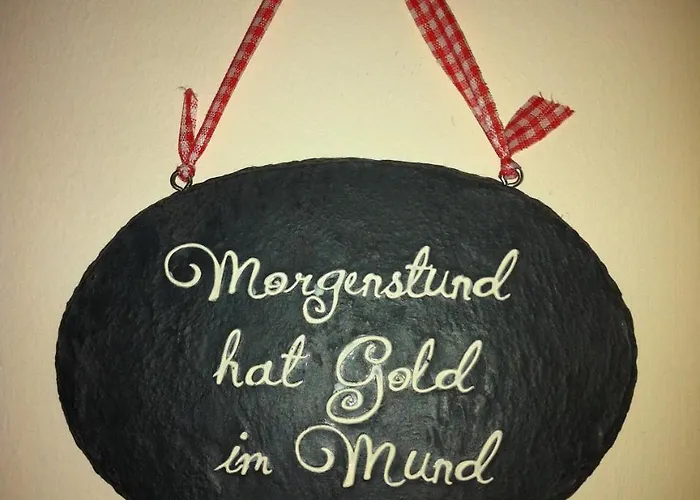 Morgenstund
hat Gold
im Mund